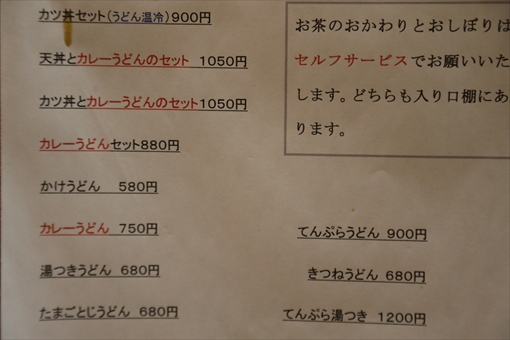 カツ丼セット(うどん温冷)900円
天丼とカレーうどんのセット 1050円
カツ丼とカレーうどんのセット1050円
カレーうどんセット880円
かけうどん 580円
カレーうどん 750円
湯つきうどん 680円
たまごとじうどん 680円
お茶のおかわりとおしぼりは
セルフサービスでお願いいた
します。どちらも入り口棚にあ
ります。
てんぷらうどん 900円
きつねうどん 680円
てんぷら湯つき 1200円